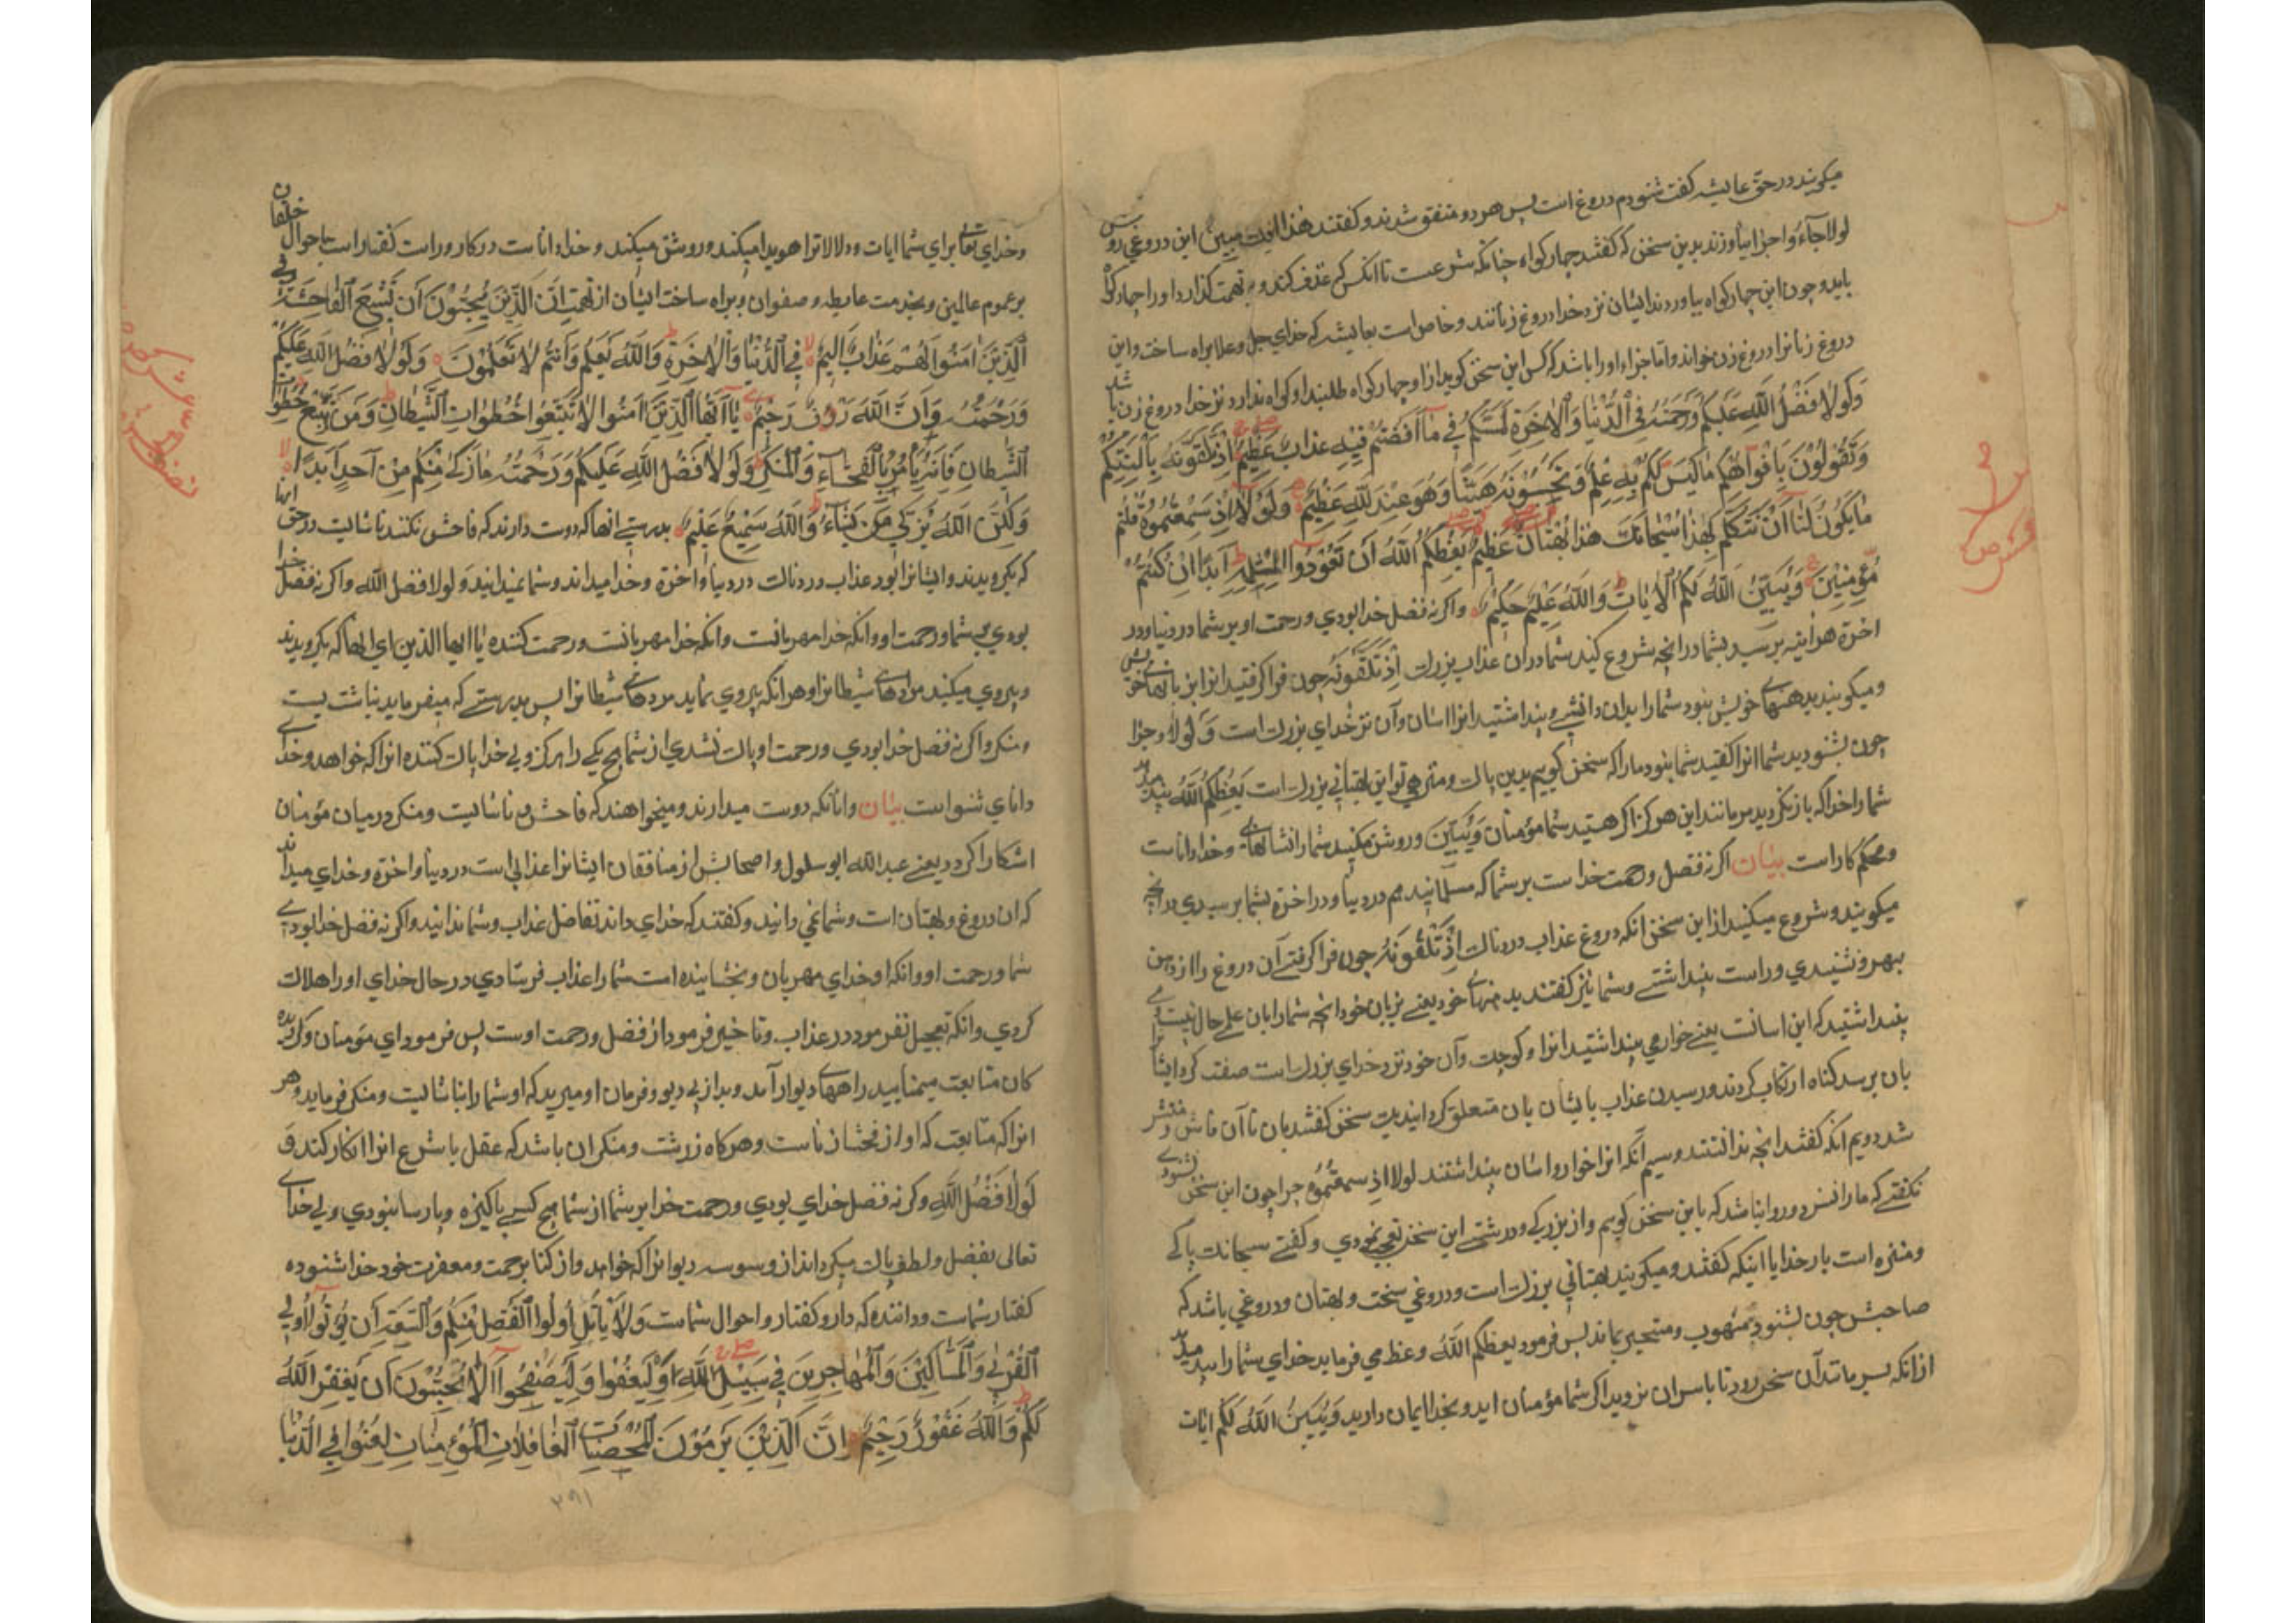 میکویند در حق عایشه کفت شنودم دروغ است پس هر دو متفق شدند و کفتند هذا افك مبین این دروغی رو
لولا جاءوا چرا نیاوزند بدین سخن که کفتند چهار کواه چنانکه شرعست تا انکس که قذف کند و به تهمت کذارد او را چهار کوا
باید و چون این چهار کواه نیاوردند ایشان نزد خدا دروغ زنانند و خاص است بعایشه که خدای جل وعلا براه ساخت و این
دروغ زنانرا دروغ زن خواند و اما جزاء او را باشد که کس این سخن کوید از او چهار کواه طلبند او کواه ندارد نزد خدا دروغ زن باشد
وَلَوْلَا فَضْلُ اللهِ عَلَيْكُمْ وَرَحْمَتُهُ فِي الدُّنْيَا وَالْاٰخِرَةِ لَمَسَّكُمْ فِي مَا اَفَضْتُمْ فِيْهِ عَذَابٌ عَظِيْمٌ اِذْ تَلَقَّوْنَهُ بِاَلْسِنَتِكُمْ
وَتَقُولُوْنَ بِاَفْوَاهِكُمْ مَا لَيْسَ لَكُمْ بِهِ عِلْمٌ وَتَحْسَبُوْنَهُ هَيِّنًا وَهُوَ عِنْدَ اللهِ عَظِيْمٌ وَلَوْلَا اِذْ سَمِعْتُمُوهُ قُلْتُمْ
مَا يَكُوْنُ لَنَا اَنْ نَتَكَلَّمَ بِهٰذَا سُبْحَانَكَ هٰذَا بُهْتَانٌ عَظِيْمٌ يَعِظُكُمُ اللهُ اَنْ تَعُوْدُوا لِمِثْلِهِ اَبَدًا اِنْ كُنْتُمْ
مُؤْمِنِيْنَ وَيُبَيِّنُ اللهُ لَكُمُ الْاٰيَاتِ وَاللهُ عَلِيْمٌ حَكِيْمٌ واکر نه فضل خدا بودی و رحمت او بر شما در دنیا و در
اخرة هراینه برسید بشما در انچه شروع کنید شما در ان عذاب بزرك اِذْ تَلَقَّوْنَهُ چون فرا کرفتید انرا بزبانهاء خویش
و میکویند بدهنهاء خویش نبود شما را بدان دانشی و پنداشتید انرا اسان و آن نزد خدای بزرك است وَلَوْلَا و چرا
چون بشنودید شما انرا کفتید شما نبود ما را که سخن کوییم بدین پاك و منزهی تو این بهتانی بزرك است يَعِظُكُمُ اللهُ پند میدهد
شما را خدا که باز نکردید مر مانند این هرکز اکر هستید شما مؤمنان وَيُبَيِّنُ و روشن میکند شما را نشانهاء و خدا دانا ست
و محکم کار است بیان اکر نه فضل و رحمت خدا ست بر شما که مسلمانید هم در دنیا و در اخرة بشما برسیدی در انچه
میکویند و شروع میکنید از این سخن انکه دروغ عذاب دردناك اِذْ تَلَقَّوْنَهُ چون فرا کرفتی آن دروغ را از دهن
بهر و شنیدی و راست پنداشتی و شما نیز کفتند بدهنهاء خود یعنی بزبان خود انچه شما را بان علم حال نیست و می
پنداشتید که این اسانست یعنی خوار می پنداشتید انرا و کوچك و آن خود نزد خدای بزرك است صفت کرد ایشانرا
بان بر سه کناه ارتکاب کردند و رسیدن عذاب بایشان بان متعلق کردانید یك سخن کفتند بان تا آن فاش و منتشر
شد دویم انکه کفتند انچه ندانستند و سیم آنکه انرا خوار و اسان پنداشتند لولا اذ سمعتموه چرا چون این سخن شنودی
نکفتی که ما را نسزد و روا نباشد که باین سخن کویم و از بزرکی و درشتی این سخن تعجب نمودی و کفتی سبحانك پاکی
و منزه است بار خدایا اینکه کفتند و میکویند بهتانی بزرك است و دروغی سخت و بهتان و دروغی باشد که
صاحبش چون بشنود مبهوت و متحیر بماند پس فرمود یعظکم الله وعظ می فرماید خدای شما را پند میدهد
از انکه بسر مانند آن سخن رود تا باسر ان نروید اکر شما مؤمنان اید و بخدا ایمان دارید وَيُبَيِّنُ اللهُ لَكُمُ ایات
وخدای تعالی برای شما ایات و دلالاترا هویدا میکند و روشن میکند و خدا دانا ست در کار و راست کفتار است باحوال خلقان
بر عموم عالمین و بخدمت عایشه و صفوان و براه ساخت ایشان از تهمت اِنَّ الَّذِيْنَ يُحِبُّوْنَ اَنْ تَشِيْعَ الْفَاحِشَةُ فِي
الَّذِيْنَ اٰمَنُوا لَهُمْ عَذَابٌ اَلِيْمٌ فِي الدُّنْيَا وَالْاٰخِرَةِ وَاللهُ يَعْلَمُ وَاَنْتُمْ لَا تَعْلَمُوْنَ وَلَوْلَا فَضْلُ اللهِ عَلَيْكُمْ
وَرَحْمَتُهُ وَاَنَّ اللهَ رَؤُفٌ رَحِيْمٌ يَا اَيُّهَا الَّذِيْنَ اٰمَنُوا لَا تَتَّبِعُوا خُطُوَاتِ الشَّيْطَانِ وَمَنْ يَتَّبِعْ خُطُوَاتِ
الشَّيْطَانِ فَاِنَّهُ يَأْمُرُ بِالْفَحْشَاءِ وَالْمُنْكَرِ وَلَوْلَا فَضْلُ اللهِ عَلَيْكُمْ وَرَحْمَتُهُ مَا زَكٰى مِنْكُمْ مِنْ اَحَدٍ اَبَدًا
وَلٰكِنَّ اللهَ يُزَكِّي مَنْ يَشَاءُ وَاللهُ سَمِيْعٌ عَلِيْمٌ بدرستی انها که دوست دارند که فاحش کنند ناشایست در حق انها
که بکرویدند و ایشانرا بود عذاب دردناك در دنیا و اخرة وخدا میداند و شما نمیدانید و لولا فضل الله و اکر نه فضل خدا
بودی بر شما و رحمت او و انکه خدا مهربانست و انکه خدا مهربانست و رحمت کننده یا ایها الذین ای انها که بکرویدند
و پیروی میکنید مرادهاء شیطانرا و هر انکه پیروی نماید مرادهاء شیطانرا پس بدرستی که میفرماید بناشایست
ومنکر و اکر نه فضل خدا بودی و رحمت او پاك نشدی از شما هیچ یکی را هرکز ولی خدا پاك کننده انرا که خواهد و خدای
دانای شنوا است بیان و انانکه دوست میدارند و میخواهند که فاحش و ناشایست و منکر در میان مؤمنان
اشکارا کردد یعنی عبدالله ابو سلول و اصحابش از منافقان ایشانرا عذابی است در دنیا و اخرة و خدای میداند
که ان دروغ و بهتان است و شما نمی دانید و کفتند که خدای داند تفاضل عذاب و شما ندانید و اکر نه فضل خدا بودی
شما و رحمت او و انکه او خدای مهربان و بخشاینده است شما را عذاب فرستادی در حال خدای او را هلاك
کردی و انکه تعجیل نفرمود در عذاب و تا خیر فرمود از فضل و رحمت اوست پس فرمود ای مؤمنان و کرویده
کان متابعت مینمایید راههای دیو را آمد و بد از پی دیو و فرمان او میرید که او شما را بناشایست و منکر فرماید و هر
انرا که متابعت که او از فحشا زناست و هر کاه زشت و منکر ان باشد که عقل یا شرع انرا انکار کند وَ
لَوْلَا فَضْلُ اللهِ و کر نه فضل خدای بودی و رحمت خدا بر شما از شما هیچ کسی پاکیزه و پارسا نبودی ولی خدای
تعالی بفضل و لطف پاك میکرداند از وسوسه دیو انرا که خواهد و از کنا برحمت و مغفرت خود خدا شنوده
کفتار شماست و داننده کردار و کفتار و احوال شماست وَلَا يَأْتَلِ اُولُوا الْفَضْلِ مِنْكُمْ وَالسَّعَةِ اَنْ يُؤْتُوا اُولِي
الْقُرْبٰى وَالْمَسَاكِيْنَ وَالْمُهَاجِرِيْنَ فِي سَبِيْلِ اللهِ وَلْيَعْفُوا وَلْيَصْفَحُوا اَلَا تُحِبُّوْنَ اَنْ يَغْفِرَ اللهُ
لَكُمْ وَاللهُ غَفُوْرٌ رَحِيْمٌ اِنَّ الَّذِيْنَ يَرْمُوْنَ الْمُحْصَنَاتِ الْغَافِلَاتِ الْمُؤْمِنَاتِ لُعِنُوا فِي الدُّنْيَا
۳۹۱